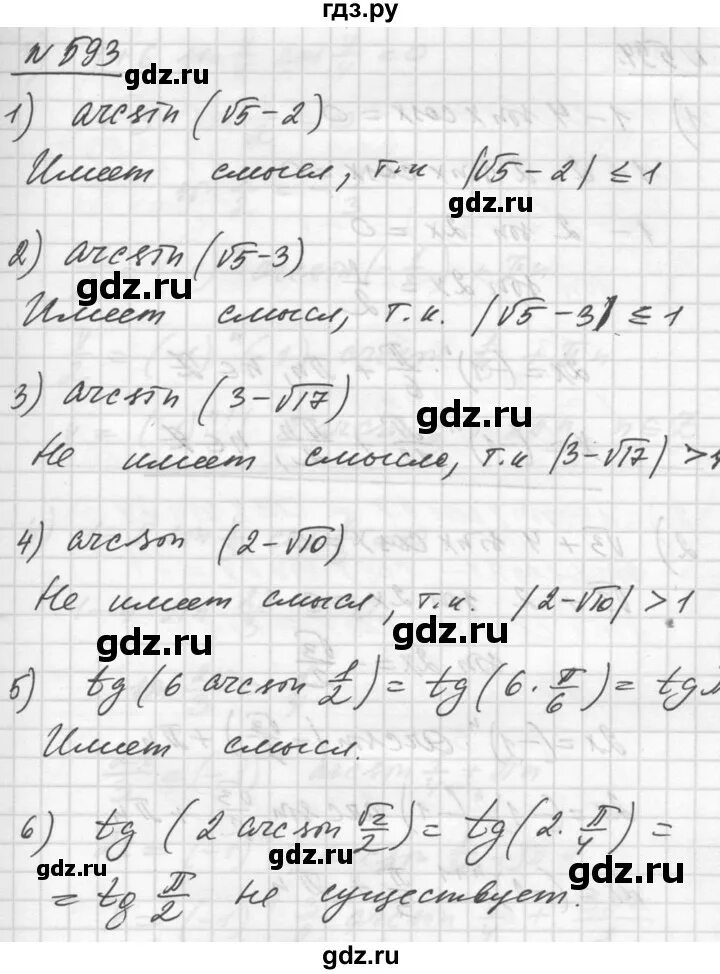 гдз.ру
N 593
gdz.ru
1) arcsin (√5-2)
Имеет смысл, т.к |√5-2| ≤ 1
gdz.ru
2) arcsin (√5-3)
gdz.ru
Имеет смысл, т.к. |√5-3| ≤ 1
3) arcsin (3-√17)
gdz.ru
Не имеет смысла, т.к |3-√17| >
4) arcsin (2-√10)
Не имеет смысл, т.к. |2-√10| > 1
gdz.ru
gdz.ru
5) tg (6 arcsin 1/2) = tg (6 · π/6) = tg
Имеет смысл.
6) tg (2 arcsin √2/2) = tg (2 · π/4) =
gdz.ru
gdz.ru
= tg π/2 не существует.
gdz.ru
gdz.ru